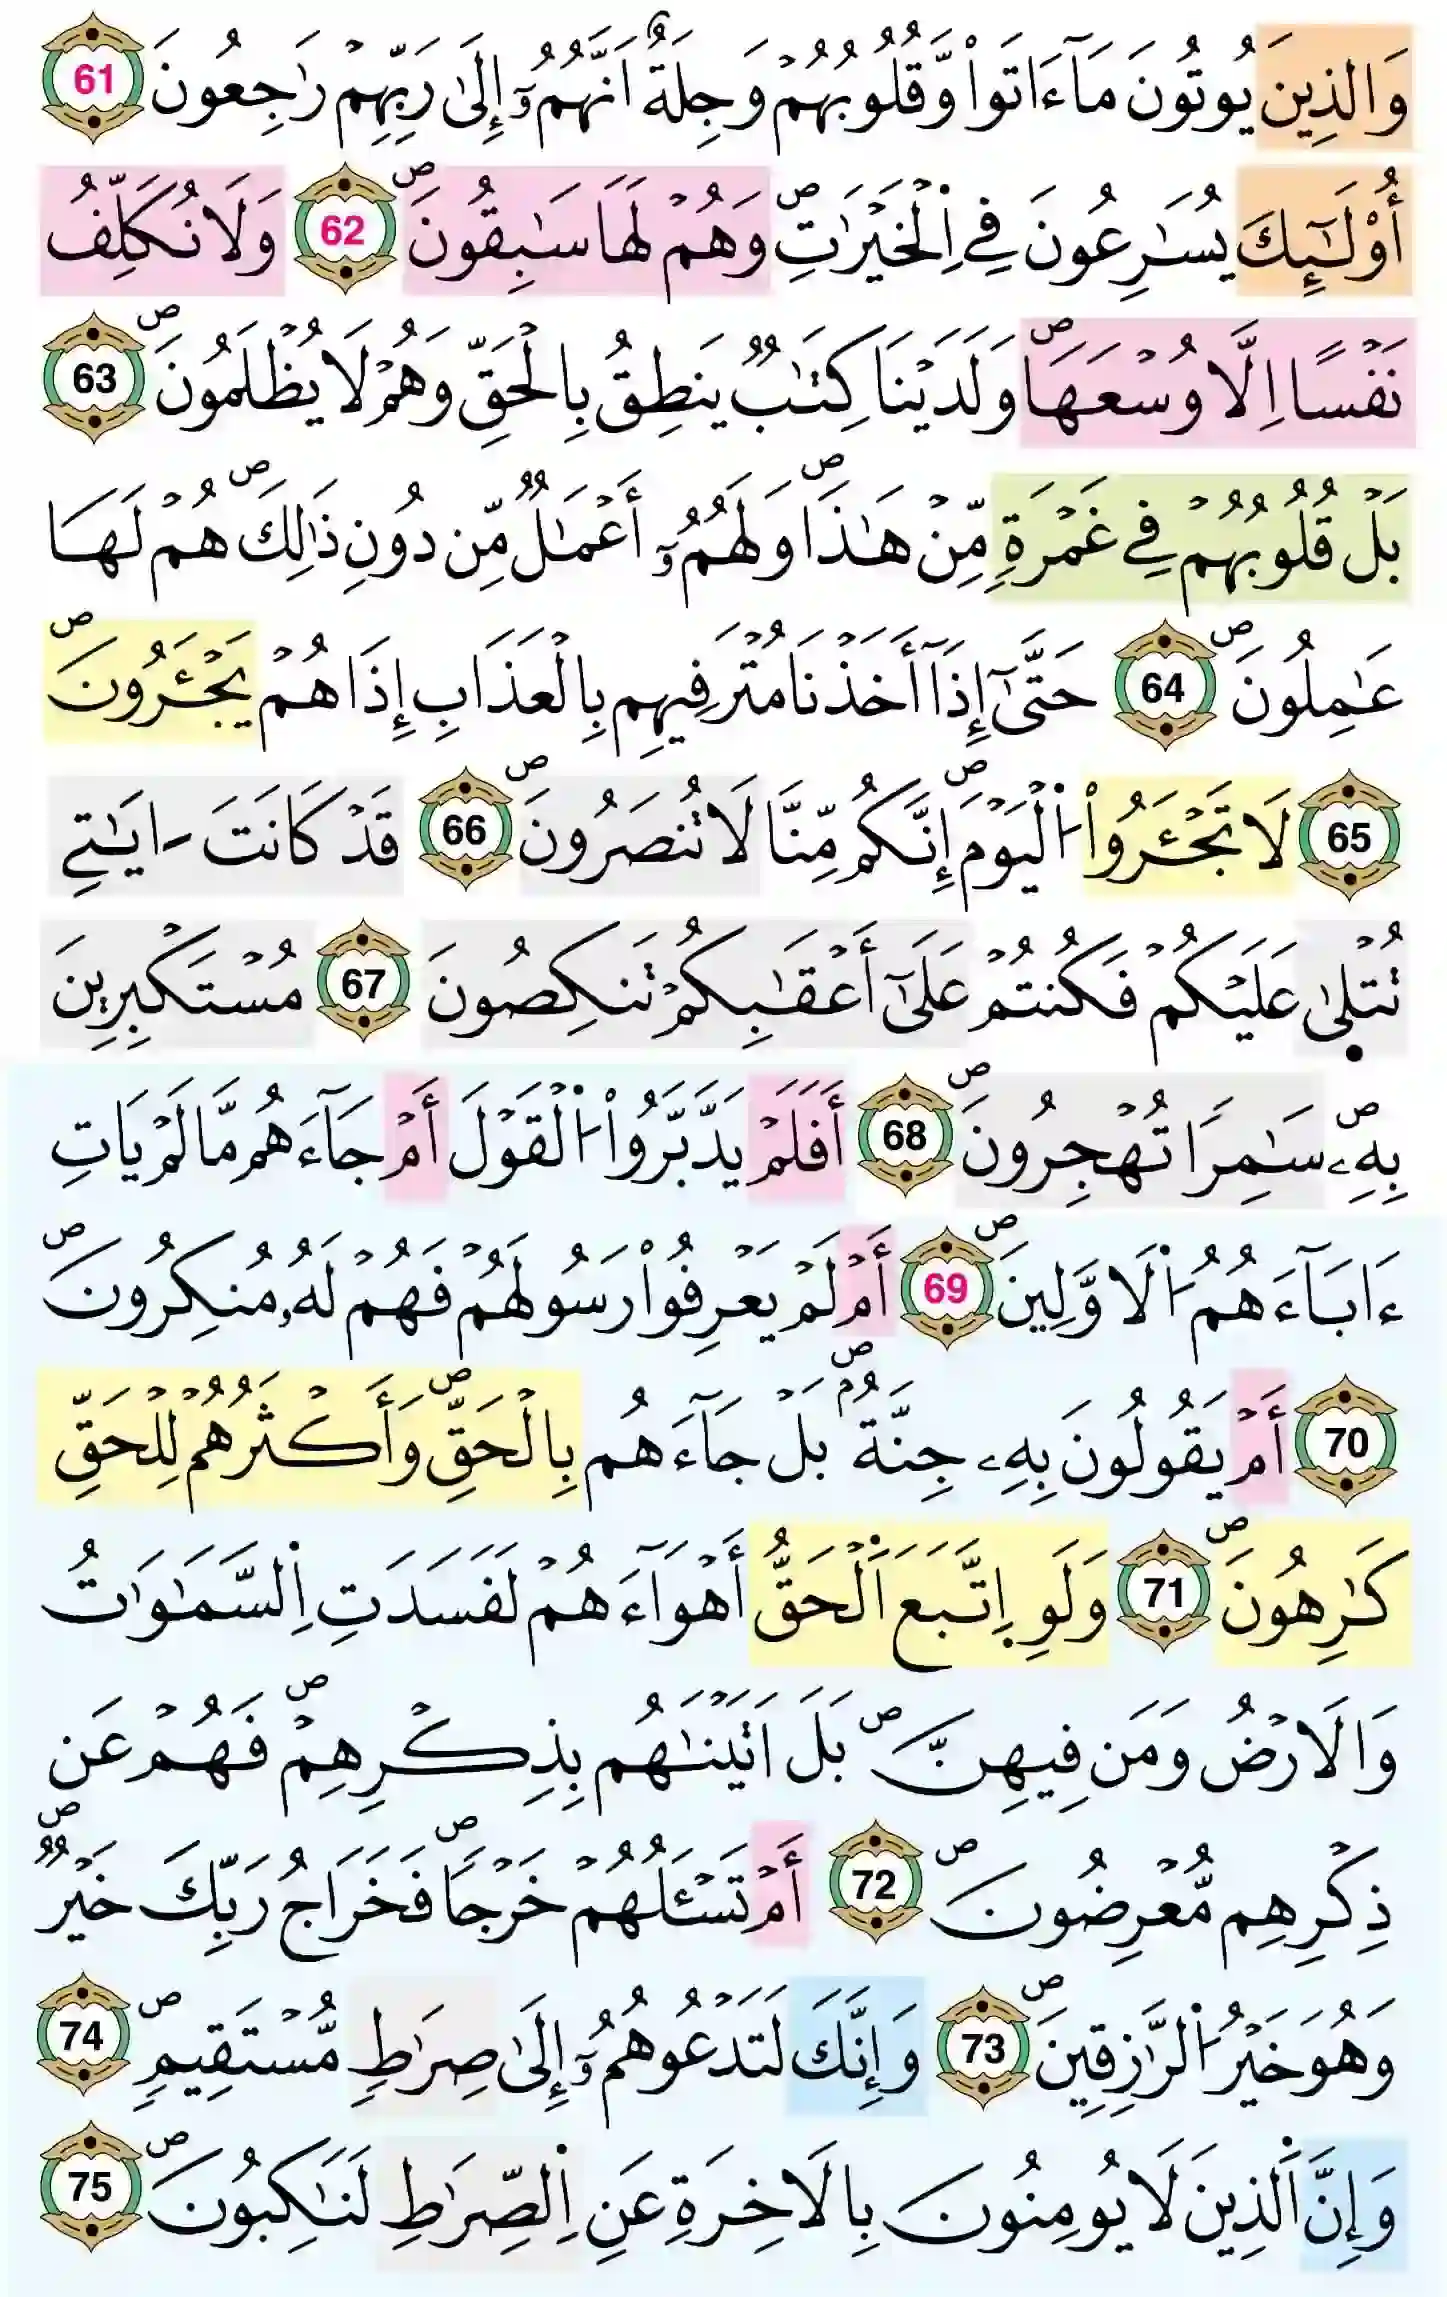 وَالذِينَ يُوتُونَ مَآ ءَاتَواْ وَّقُلُوبُهُمْ وَجِلَةٌ اَنَّهُمُۥٓ إِلَىٰ رَبِّهِمْ رَٰجِعُونَ 61
أُوْلَٰٓئِكَ يُسَٰرِعُونَ فِے اِ۬لْخَيْرَٰتِۖ وَهُمْ لَهَا سَٰبِقُونَۖ 62 وَلَا نُكَلِّفُ
نَفْسًا اِلَّا وُسْعَهَاۖ وَلَدَيْنَا كِتَٰبٌ يَنطِقُ بِالْحَقِّ وَهُمْ لَا يُظْلَمُونَۖ 63
بَلْ قُلُوبُهُمْ فِے غَمْرَةٍ مِّنْ هَٰذَاۖ وَلَهُمُۥٓ أَعْمَٰلٌ مِّن دُونِ ذَٰلِكَۖ هُمْ لَهَا
عَٰمِلُونَۖ 64 حَتَّىٰٓ إِذَآ أَخَذْنَا مُتْرَفِيهِم بِالْعَذَابِ إِذَا هُمْ يَجْـَٔرُونَۖ
65 لَا تَجْـَٔرُواْ اُ۬لْيَوْمَۖ إِنَّكُم مِّنَّا لَا تُنصَرُونَۖ 66 قَدْ كَانَتَ اٰيَٰتِے
تُتْلٜىٰ عَلَيْكُمْ فَكُنتُمْ عَلَىٰٓ أَعْقَٰبِكُمْ تَنكِصُونَ 67 مُسْتَكْبِرِينَ
بِهِۦۖ سَٰمِرًا تُهْجِرُونَۖ 68 أَفَلَمْ يَدَّبَّرُواْ اُ۬لْقَوْلَ أَمْ جَآءَهُم مَّا لَمْ يَاتِ
ءَابَآءَهُمُ اُ۬لَاوَّلِينَۖ 69 أَمْ لَمْ يَعْرِفُواْ رَسُولَهُمْ فَهُمْ لَهُۥ مُنكِرُونَۖ
70 أَمْ يَقُولُونَ بِهِۦ جِنَّةُۢۖ بَلْ جَآءَهُم بِالْحَقِّۖ وَأَكْثَرُهُمْ لِلْحَقِّ
كَٰرِهُونَۖ 71 وَلَوِ اِ۪تَّبَعَ اَ۬لْحَقُّ أَهْوَآءَهُمْ لَفَسَدَتِ اِ۬لسَّمَٰوَٰتُ
وَالَارْضُ وَمَن فِيهِنَّۖ بَلَ اَتَيْنَٰهُم بِذِكْرِهِمْۖ فَهُمْ عَن
ذِكْرِهِم مُّعْرِضُونَۖ 72 أَمْ تَسْـَٔلُهُمْ خَرْجًاۖ فَخَرَاجُ رَبِّكَ خَيْرٌۖ
وَهُوَ خَيْرُ اُ۬لرَّٰزِقِينَۖ 73 وَإِنَّكَ لَتَدْعُوهُمُۥٓ إِلَىٰ صِرَٰطٍ مُّسْتَقِيمٍۖ 74
وَإِنَّ اَ۬لذِينَ لَا يُومِنُونَ بِالَاخِرَةِ عَنِ اِ۬لصِّرَٰطِ لَنَٰكِبُونَۖ 75